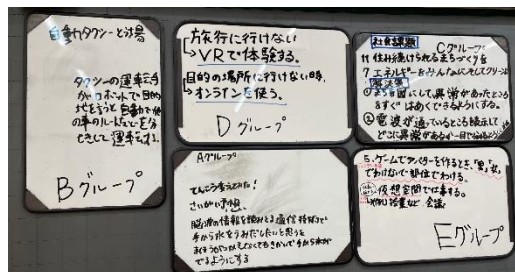 自動タクシーと対話
タクシーの運転手
がロボットで目的
地を言うと自動で
車のルートなどを
して運転する。
Bグループ
旅行に行けない
→VRで体験する。
目的の場所に行けない時、
オンラインを使う。
Dグループ
社会課題 Cグループ
11 住み続けられるまちづくりを
7 エネルギーをみんなにそしてクリーンに
解決策
① 図にして、異常があったところ
をすぐはあくできるようにする。
② 電波が通っているところを表示して
どこに異常があるか一目で
Aグループ
てんこう変えてみた!
さいがい予知
脳波の情報を読みとる通信技術で
手から水をうみだしたいと思うと
手から水が
でるようにする
5. ゲームでアバターを作るとき、「男」「女」
でわけないで部位でわける。
仮想空間で仕事する。
授業など 会議
Eグループ